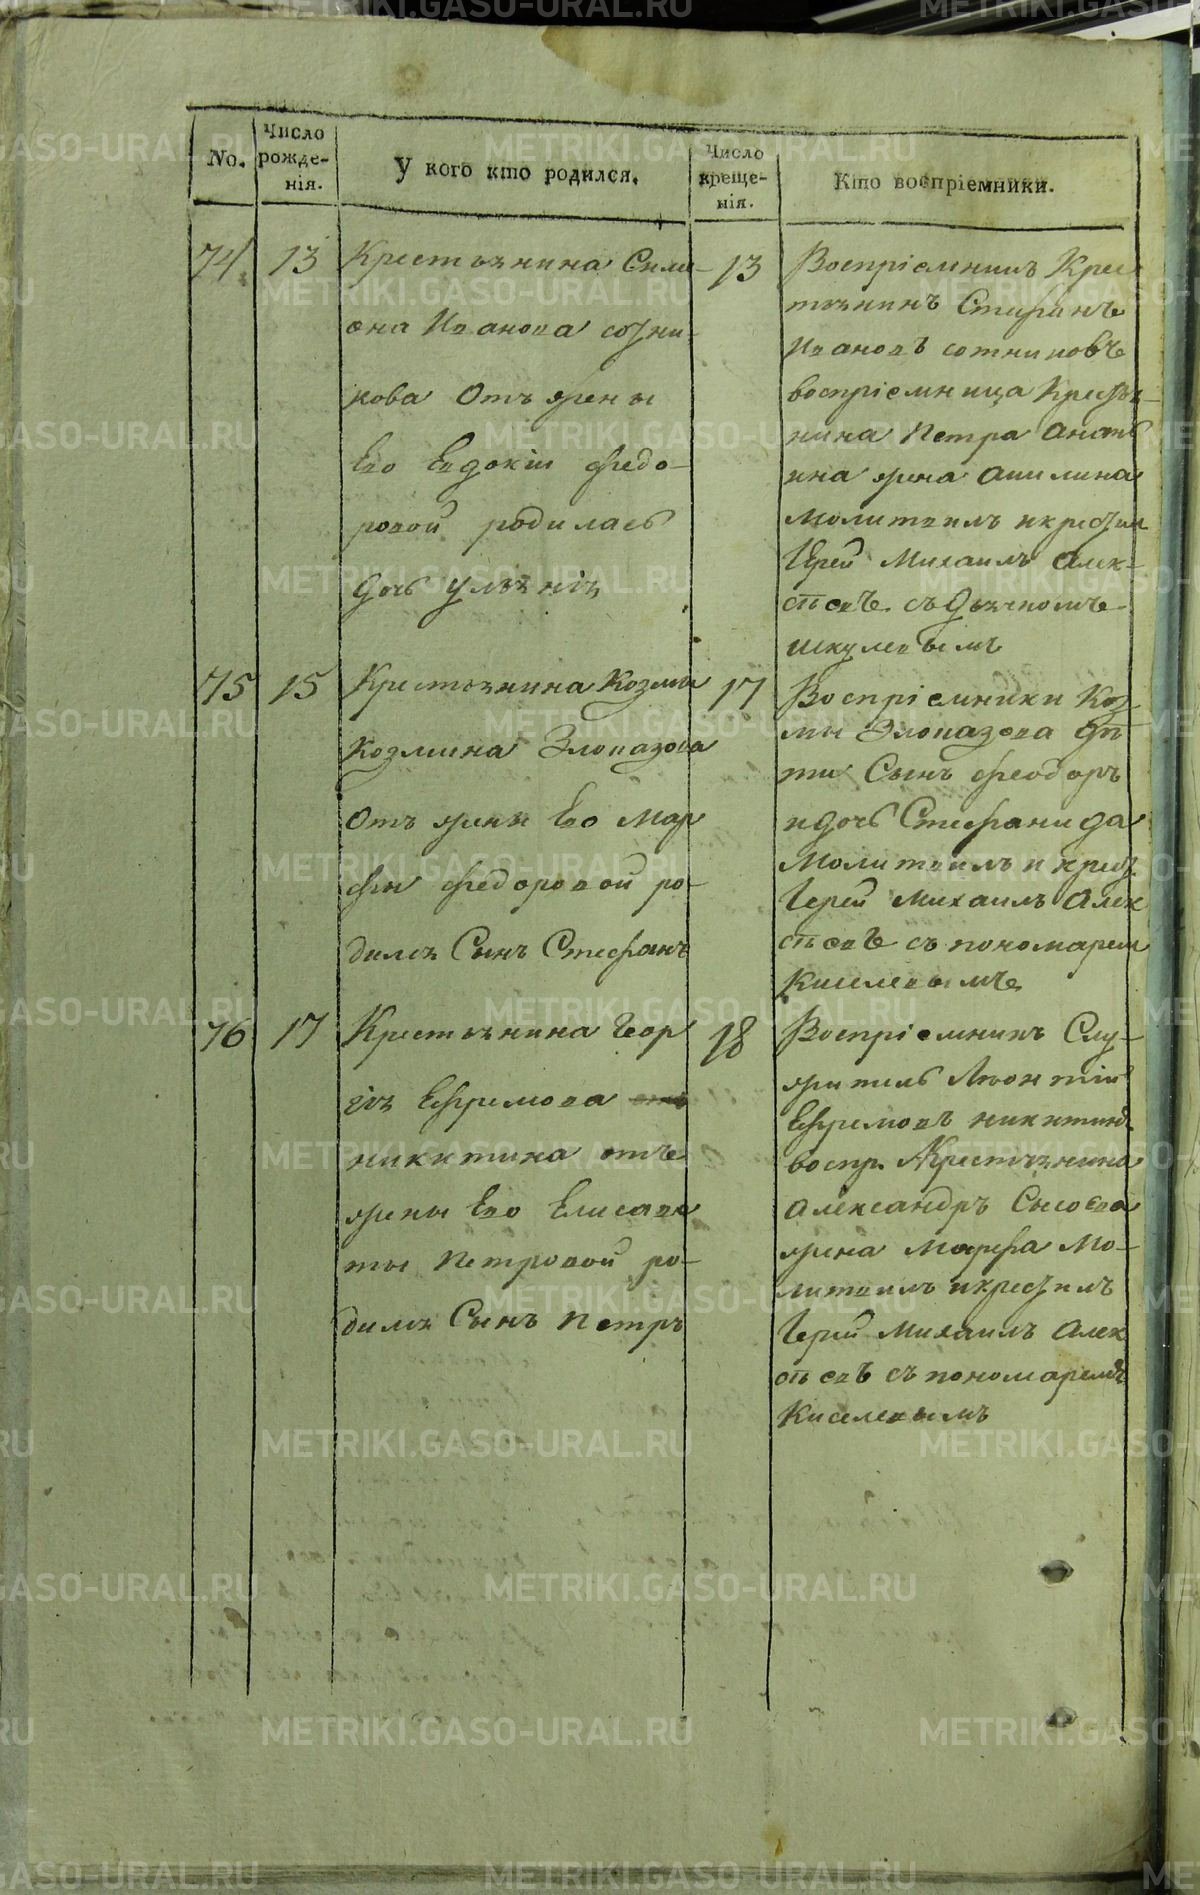 No.
Число рожде- нія.
У кого кто родился.
Число креще- нія.
Кто воспріемники.
74
13
Крестьянина Симе-
она Иванова сотни-
кова Отъ жены
Его Евдокіи Федо-
ровой родилась
дочь Ульянія
13
Воспріемникъ Крес
тьянинъ Стефанъ
Ивановъ сотниковъ
воспріемница Крестья-
нина Петра
жена Акилина
Молитвилъ и крестил
Іерей Михаилъ Алек-
ѣевъ съ Дьячкомъ
75
15
Крестьянина Козмы
Козмина Злоказова
Отъ жены Его Мар
фы Федоровой ро-
дился Сынъ Стефанъ
17
Воспріемники Коз
мы Злоказова дѣ
ти Сынъ Феодоръ
и дочь Стефанида
Молитвилъ и крест.
Іерей Михаилъ Алек
сѣевъ съ пономарем
Киселевымъ
76
17
Крестьянина Геор
гія Ефремова
никитина отъ
жены Его Елисаве
ты Петровой ро-
дился Сынъ Петръ
18
Воспріемникъ Слу-
житель Леонтій
Ефремовъ никитинъ
воспр. Крестьянина
Александръ Сысоева
жена Марфа Мо-
литвилъ и крестилъ
Іерей Михаилъ Алек
сѣевъ съ пономаремъ
Киселевымъ
METRIKI.GASO-URAL.RU